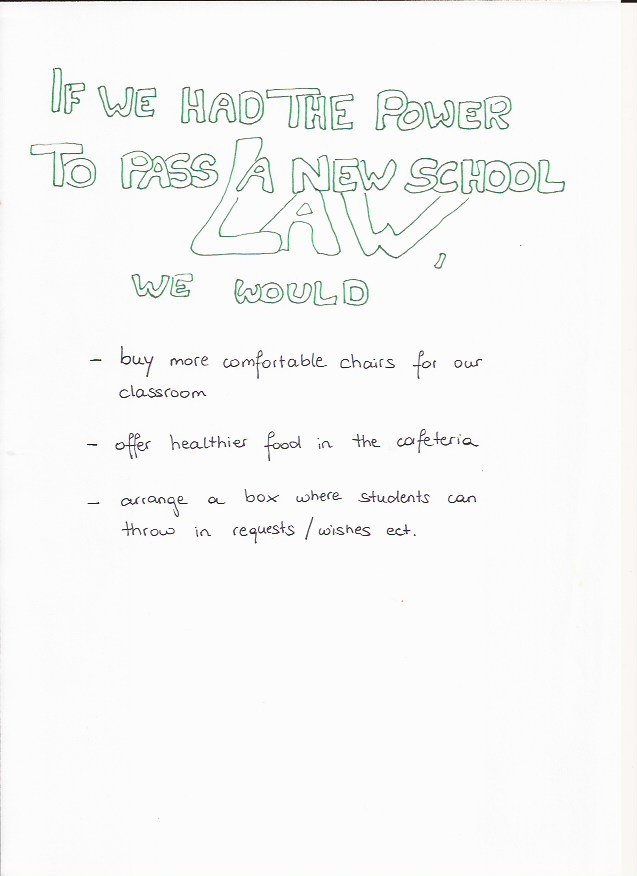 IF WE HAD THE POWER
TO PASS A NEW SCHOOL
LAW,
WE WOULD
- buy more comfortable chairs for our
classroom
- offer healthier food in the cafeteria
- arrange a box where students can
throw in requests / wishes ect.